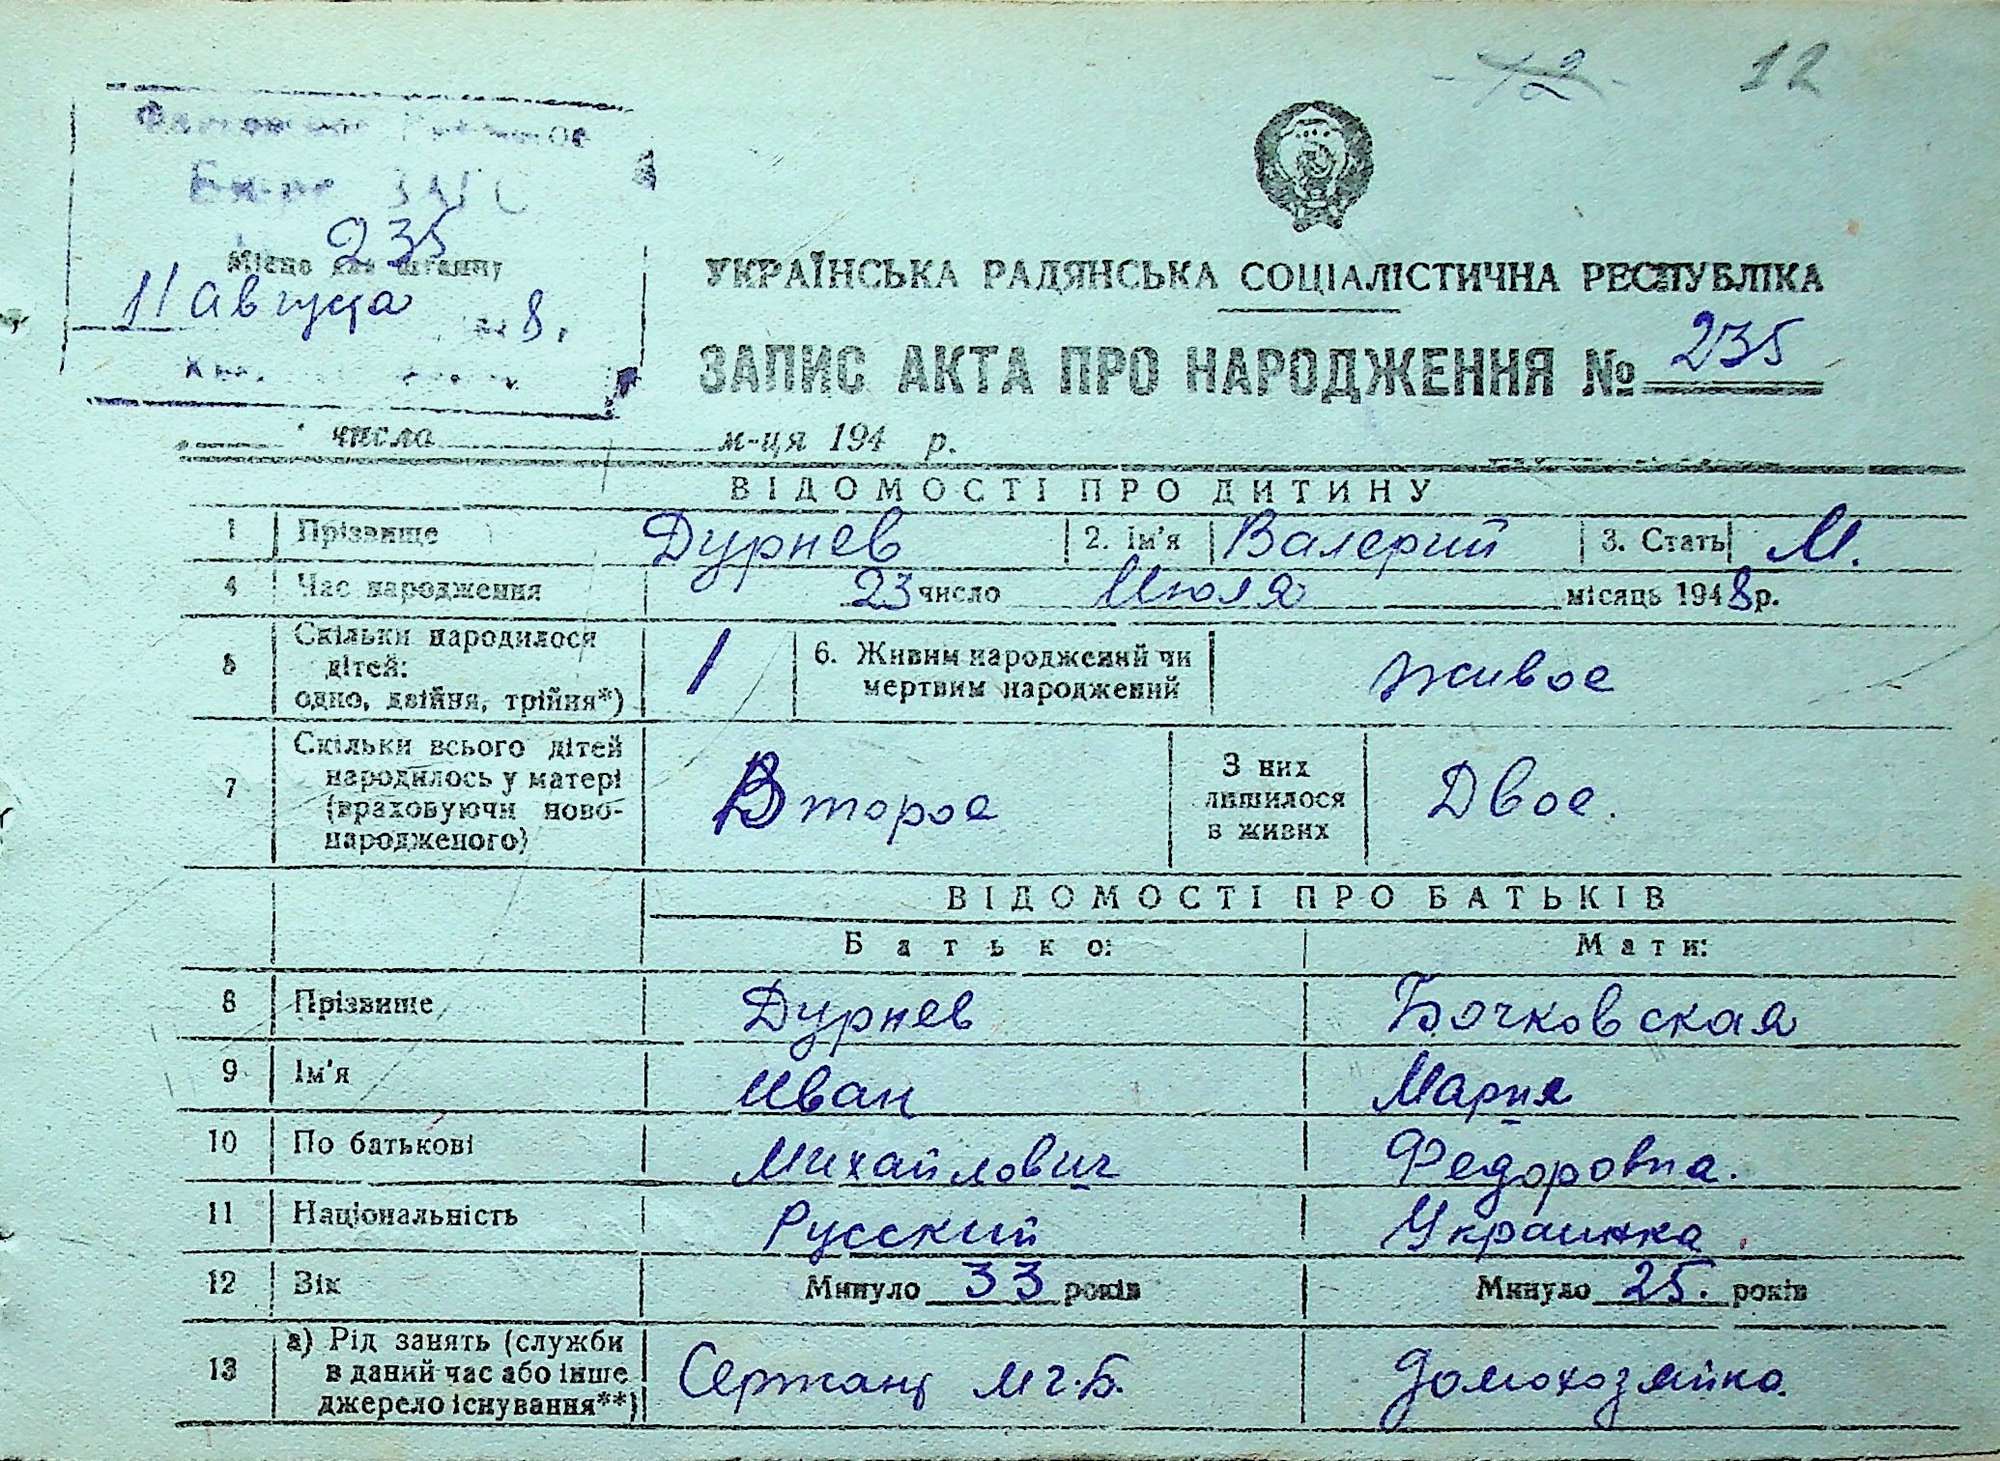 12 12
Бюро ЗАГС
235
Місце для штампу
11 Августа 8.
УКРАЇНСЬКА РАДЯНСЬКА СОЦІАЛІСТИЧНА РЕСПУБЛІКА
ЗАПИС АКТА ПРО НАРОДЖЕННЯ № 235
числа м-ця 194 р.
ВІДОМОСТІ ПРО ДИТИНУ
1 Прізвище Дурнев 2. Ім'я Валерий 3. Стать М.
4 Час народження 23 число Июля місяць 1948 р.
5 Скільки народилося
дітей:
одно, двійня, трійня*) 1 6. Живим народжений чи
мертвим народжений живое
7 Скільки всього дітей
народилось у матері
(враховуючи ново-
народженого) Второе З них
лишилося
в живих Двое.
ВІДОМОСТІ ПРО БАТЬКІВ
Батько: Мати:
8 Прізвище Дурнев Бочковская
9 Ім'я Иван Мария
10 По батькові Михайлович Федоровна.
11 Національність Русский Украинка
12 Вік Минуло 33 років Минуло 25. років
13 а) Рід занять (служби
в даний час або інше
джерело існування**) Сержант М.г.Б. Домохозяйка.